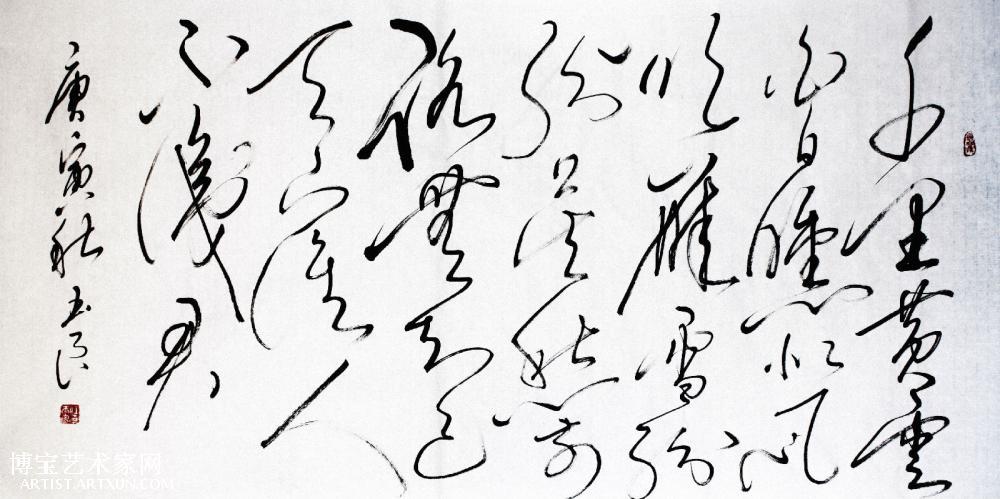 千里黃雲
白日曛北風
吹雁雪紛
紛莫愁前
路無知己
天下誰人
不識君
庚寅秋
博宝艺术家网
ARTIST.ARTXUN.COM